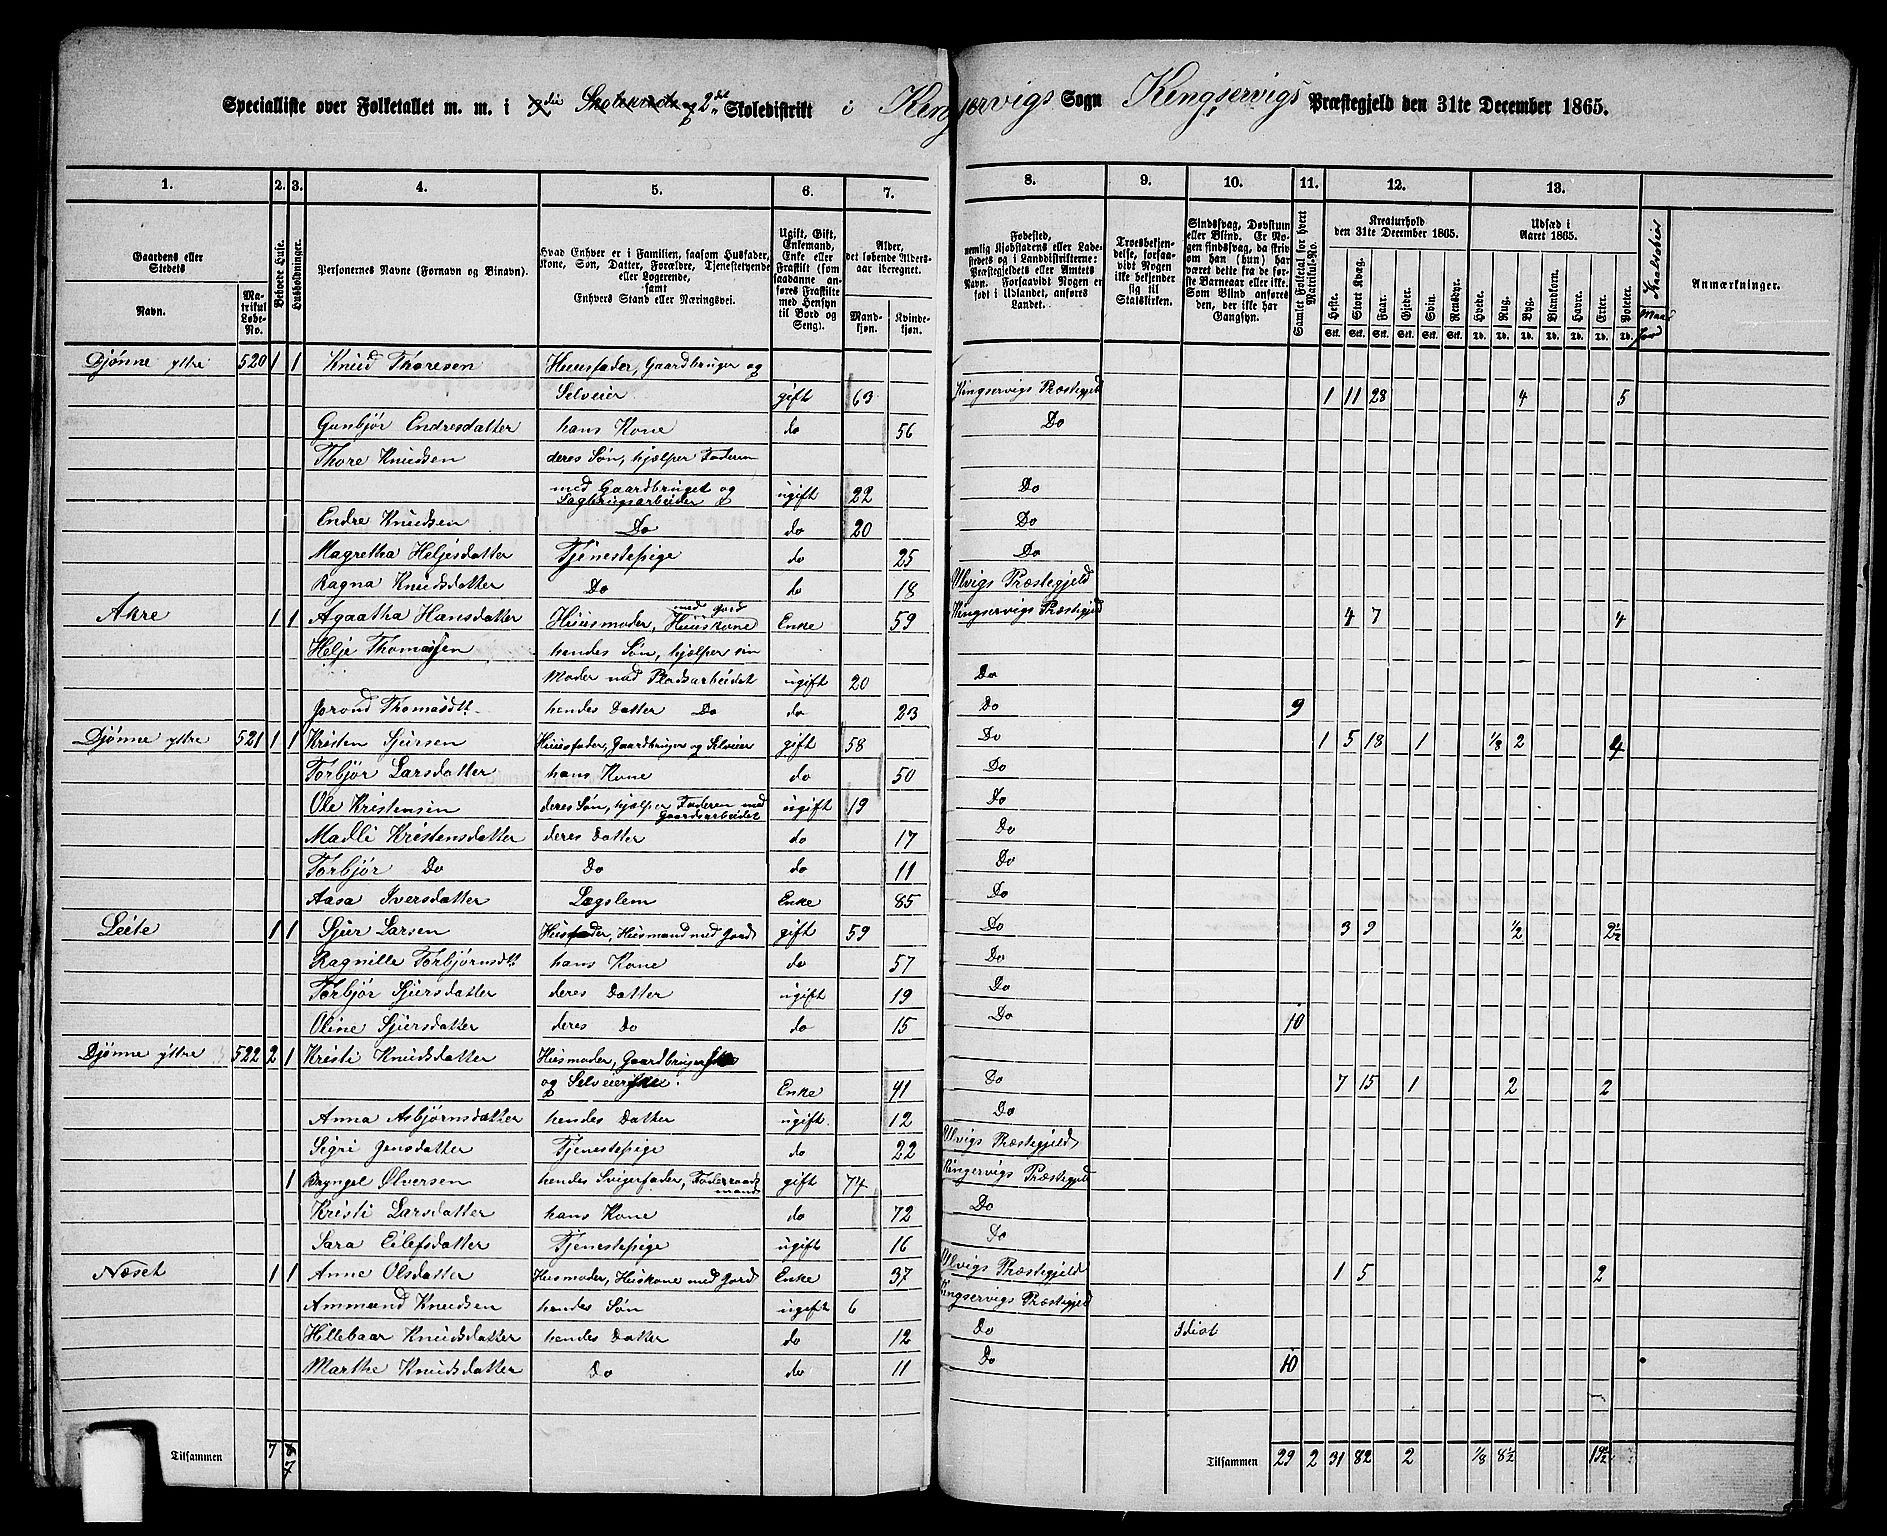 Specialliste over Folketallet m. m. i 2det Skoledistrikt i Kingservigs Sogn Kingservigs Præstegjeld den 31te December 1865.
1. 2. 3. 4. 5. 6. 7. 8. 9. 10. 11. 12. 13.
Gaardens eller Stedets
Navn. Matrikul Løbe-No.
Beboede Huse.
Husholdninger.
Personernes Navne (Fornavn og Binavn).
Hvad Enhver er i Familien, saasom Husfader, Kone, Søn, Datter, Forældre, Tjenestetyende eller Logerende, samt Enhvers Stand eller Næringsvei.
Ugift, Gift, Enkemand, Enke eller Fraskilt (som saadanne anføres Fraskilte med Hensyn til Bord og Seng).
Alder, det løbende Aldersaar iberegnet.
Mandkjøn. Kvindekjøn.
Fødested, nemlig Kjøbstadens eller Ladestedets og i Landdistrikterne: Præstegjeldets eller Amtets Navn. Forsaavidt Nogen er født i Udlandet, anføres Landet.
Troesbekjendelse, forsaavidt Nogen ikke bekjender sig til Statskirken.
Sindssvag, Døvstum eller Blind. Er Nogen sindssvag, da skrives om han (hun) har været dette fra de første Barneaar eller ikke. Som Blind anføres den, der ikke har Gangsyn.
Samlet Folketal for hvert Matrikul-No.
Kreaturhold den 31te December 1865.
Heste. Stort Kvæg. Faar. Gjeder. Svin. Rensdyr.
Udsæd i Aaret 1865.
Hvede. Rug. Byg. Blandkorn. Havre. Erter. Poteter.
Anmærkninger.
Djønne ytre 520 1 1 Knud Thoresen Huusfader, Gaardbruger og
Selveier gift 63 Kingservigs Præstegjeld 1 11 28 4 5
Gunbjør Endresdatter hans Kone do 56 Do
Thore Knudsen deres Søn, hjælper Faderen
med Gaardbruget og
Sagbrugsarbeider ugift 22 Do
Endre Knudsen Do do 20 Do
Magretha Heljesdatter Tjenestepige do 25 Do
Ragna Knudsdatter Do do 18 Ulvigs Præstegjeld
Akre 1 1 Agaatha Hansdatter Huusmoder, Huuskone med Jord Enke 59 Kingservigs Præstegjeld 4 7 4
Helje Thomassen hendes Søn, hjælper sin
Moder med Pladsarbeidet ugift 20 Do
Jorond Thomasdtt. hendes Datter Do do 23 Do 9
Djønne ytre 521 1 1 Kristen Sjursen Huusfader, Gaardbruger og Selveier gift 58 Do 1 5 18 1 1/8 2 4
Torbjør Larsdatter hans Kone do 50 Do
Ole Kristensen deres Søn, hjælper Faderen med Gaardsarbeidet ugift 19 Do
Madli Kristensdatter deres Datter do 17 Do
Torbjør Do Do do 11 Do
Aasa Iversdatter Lægslem Enke 85 Do
Leite 1 1 Sjur Larsen Husfader, Husmand med Jord gift 59 Do 3 9 1/2 2 1/2
Ragnille Torbjørnsdtt hans Kone do 57 Do
Torbjør Sjursdatter deres Datter ugift 19 Do
Oline Sjursdatter deres Do do 15 Do 10
Djønne ytre 522 2 1 Kristi Knudsdatter Husmoder, Gaardbrugerske
og Selveierske. Enke 41 Do 7 15 1 2 2
Anna Asbjørnsdatter hendes Datter ugift. 12 Do
Sigri Jensdatter Tjenestepige do 22 Ulvigs Præstegjeld
1 Bryngel Ølversen hendes Svigerfader, Føderaadsmand gift 74 Kingervigs Præstegjeld
Kristi Larsdatter hans Kone do 72 Do
Sara Eilefsdatter Tjenestepige ugift 16 Do
Næset 1 1 Anne Olsdatter Husmoder, Huskone med Jord Enke 37 Ulvigs Præstegjeld 1 5 2
Ammund Knudsen hendes Søn ugift 6 Kingservigs Præstegjeld
Hillebaar Knudsdatter hendes Datter do 12 Do Idiot
Marthe Knudsdatter Do do 11 Do 10
Tilsammen 7 7 Tilsammen 29 2 31 82 2 1/8 8 1/2